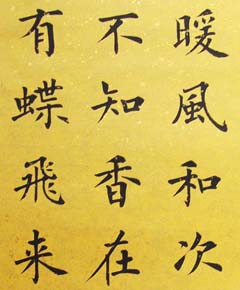 暖風和次
不知香在
有蝶飛来